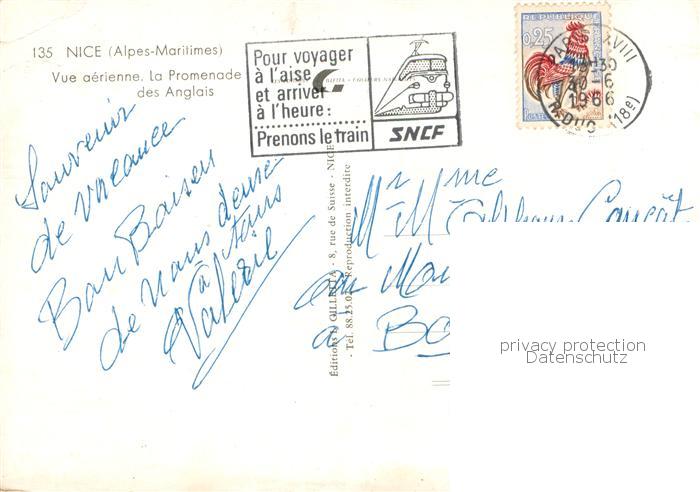 135 NICE (Alpes-Maritimes)
Vue aérienne. La Promenade
des Anglais
Pour voyager
à l'aise
et arriver
à l'heure :
Prenons le train
SNCF
REPUBLIQUE FRANÇAISE
0,25
POSTES
PARIS XVIII
30-6
1966
R. DUC (18e)
Souvenir
de vacance
Bon Baiser
de nous deux
à tous
Valérie
Éditions GILLETTA - 8, rue de Suisse - NICE
- Tél. 88.25.07 Reproduction interdite
Mr Mme
au
à BO
privacy protection
Datenschutz